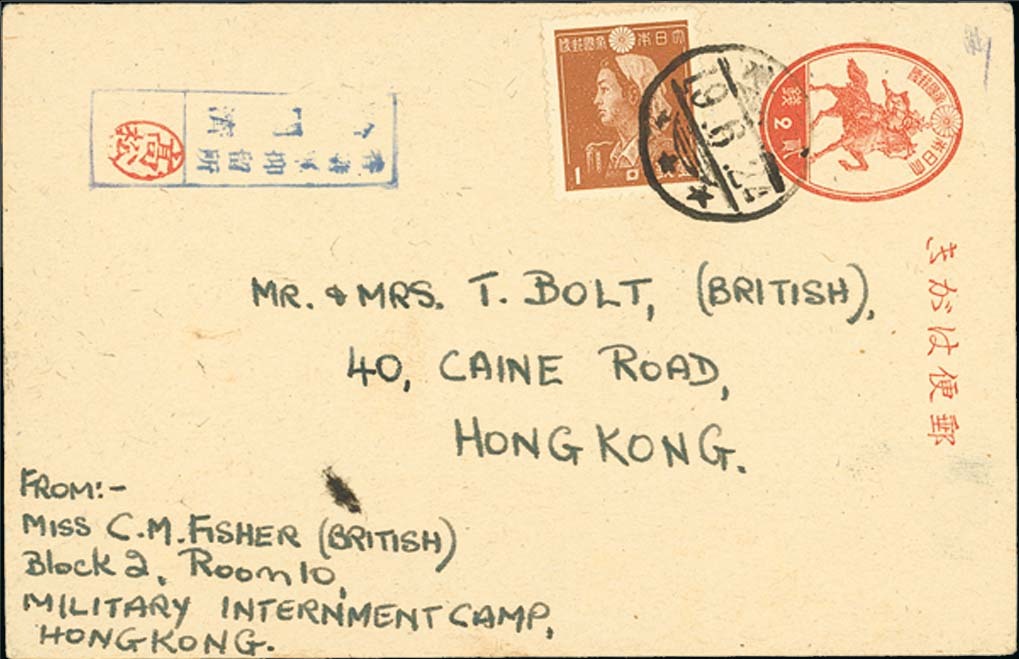 高松
大日本帝國郵便
1
19.6.
大日本帝國郵便
2
錢
郵便はがき
MR. & MRS. T. BOLT, (BRITISH),
40, CAINE ROAD,
HONG KONG.
FROM:-
MISS C.M. FISHER (BRITISH)
Block 2, Room 10,
MILITARY INTERNMENT CAMP,
HONGKONG.